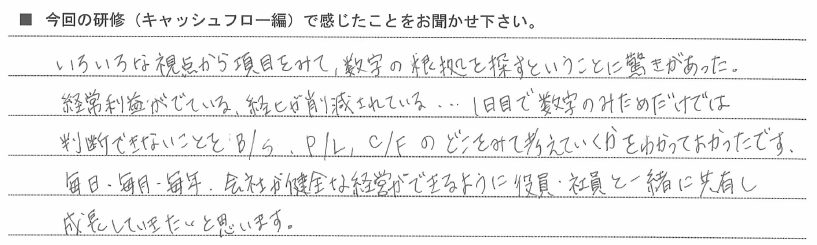 ■ 今回の研修（キャッシュフロー編）で感じたことをお聞かせ下さい。
いろいろな視点から項目をみて、数字の根拠を探すということに驚きがあった。
経常利益がでている、経ヒが削減されている… 1日目で数字のみためだけでは
判断できないことを B/S、P/L、C/F のどこをみて考えていくかをわかっておかったです、
毎日・毎月・毎年、会社が健全な経営ができるように役員・社員と一緒に共有し
成長していきたいと思います。